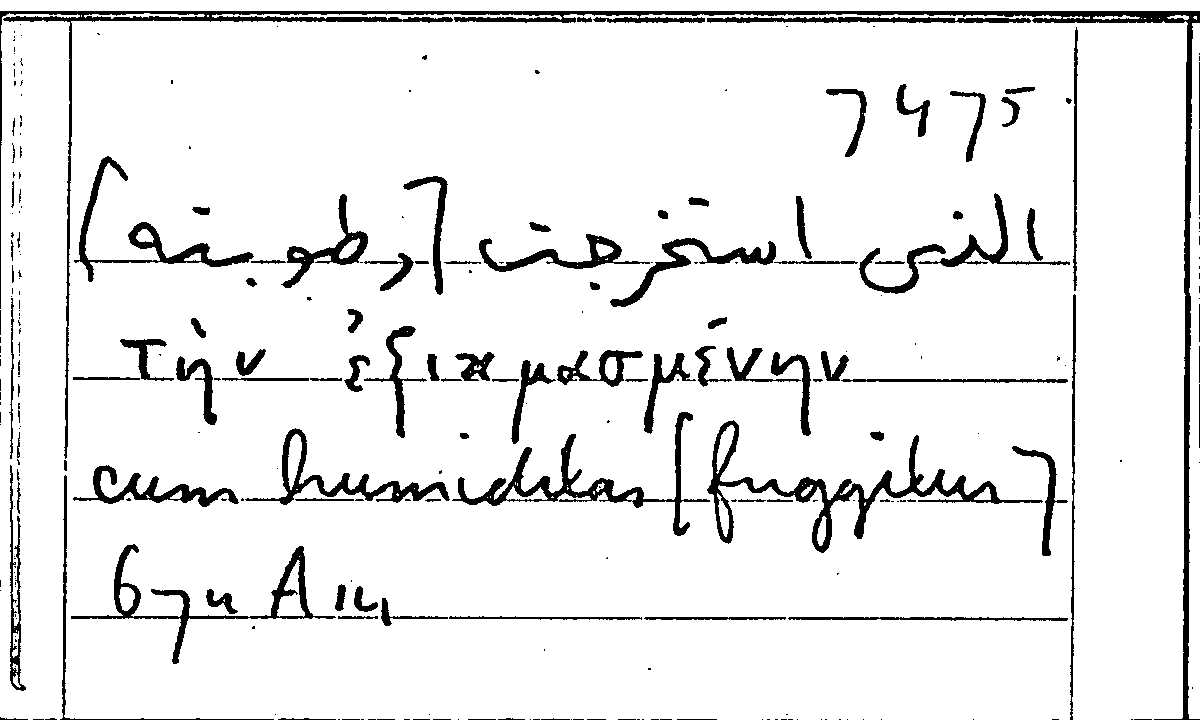 7475
التى استخرجت [رطوبته]
τὴν ἐξικμασμένην
cum humiditas [fuggitur]
674 A 14